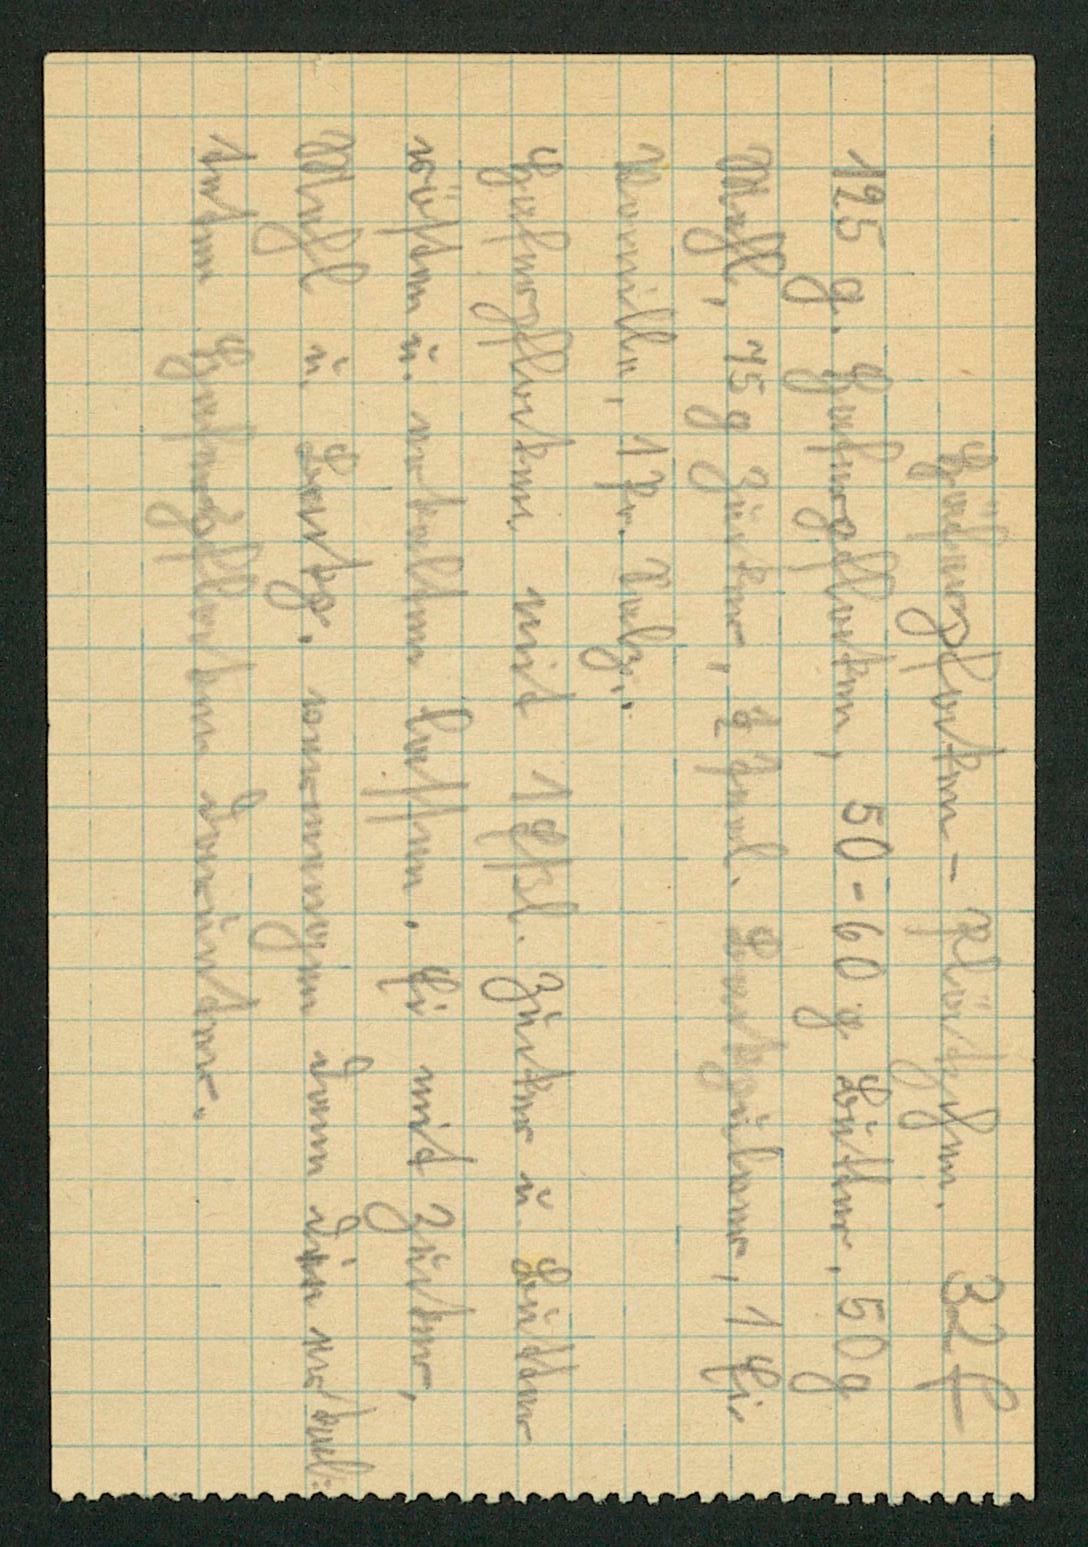 Haferflocken-Plätzchen. 32 f
125 g. Haferflocken, 50-60 g Butter, 50 g
Mehl, 75 g Zucker, ½ Backpulver, 1 Ei
Vanille, 1 Pr. Salz.
Haferflocken mit 1 Eßl. Zucker u. Butter
rösten u. erkalten lassen. Ei mit Zucker,
Mehl u. Backp. vermengen dann die erkal-
teten Haferflocken darunter.